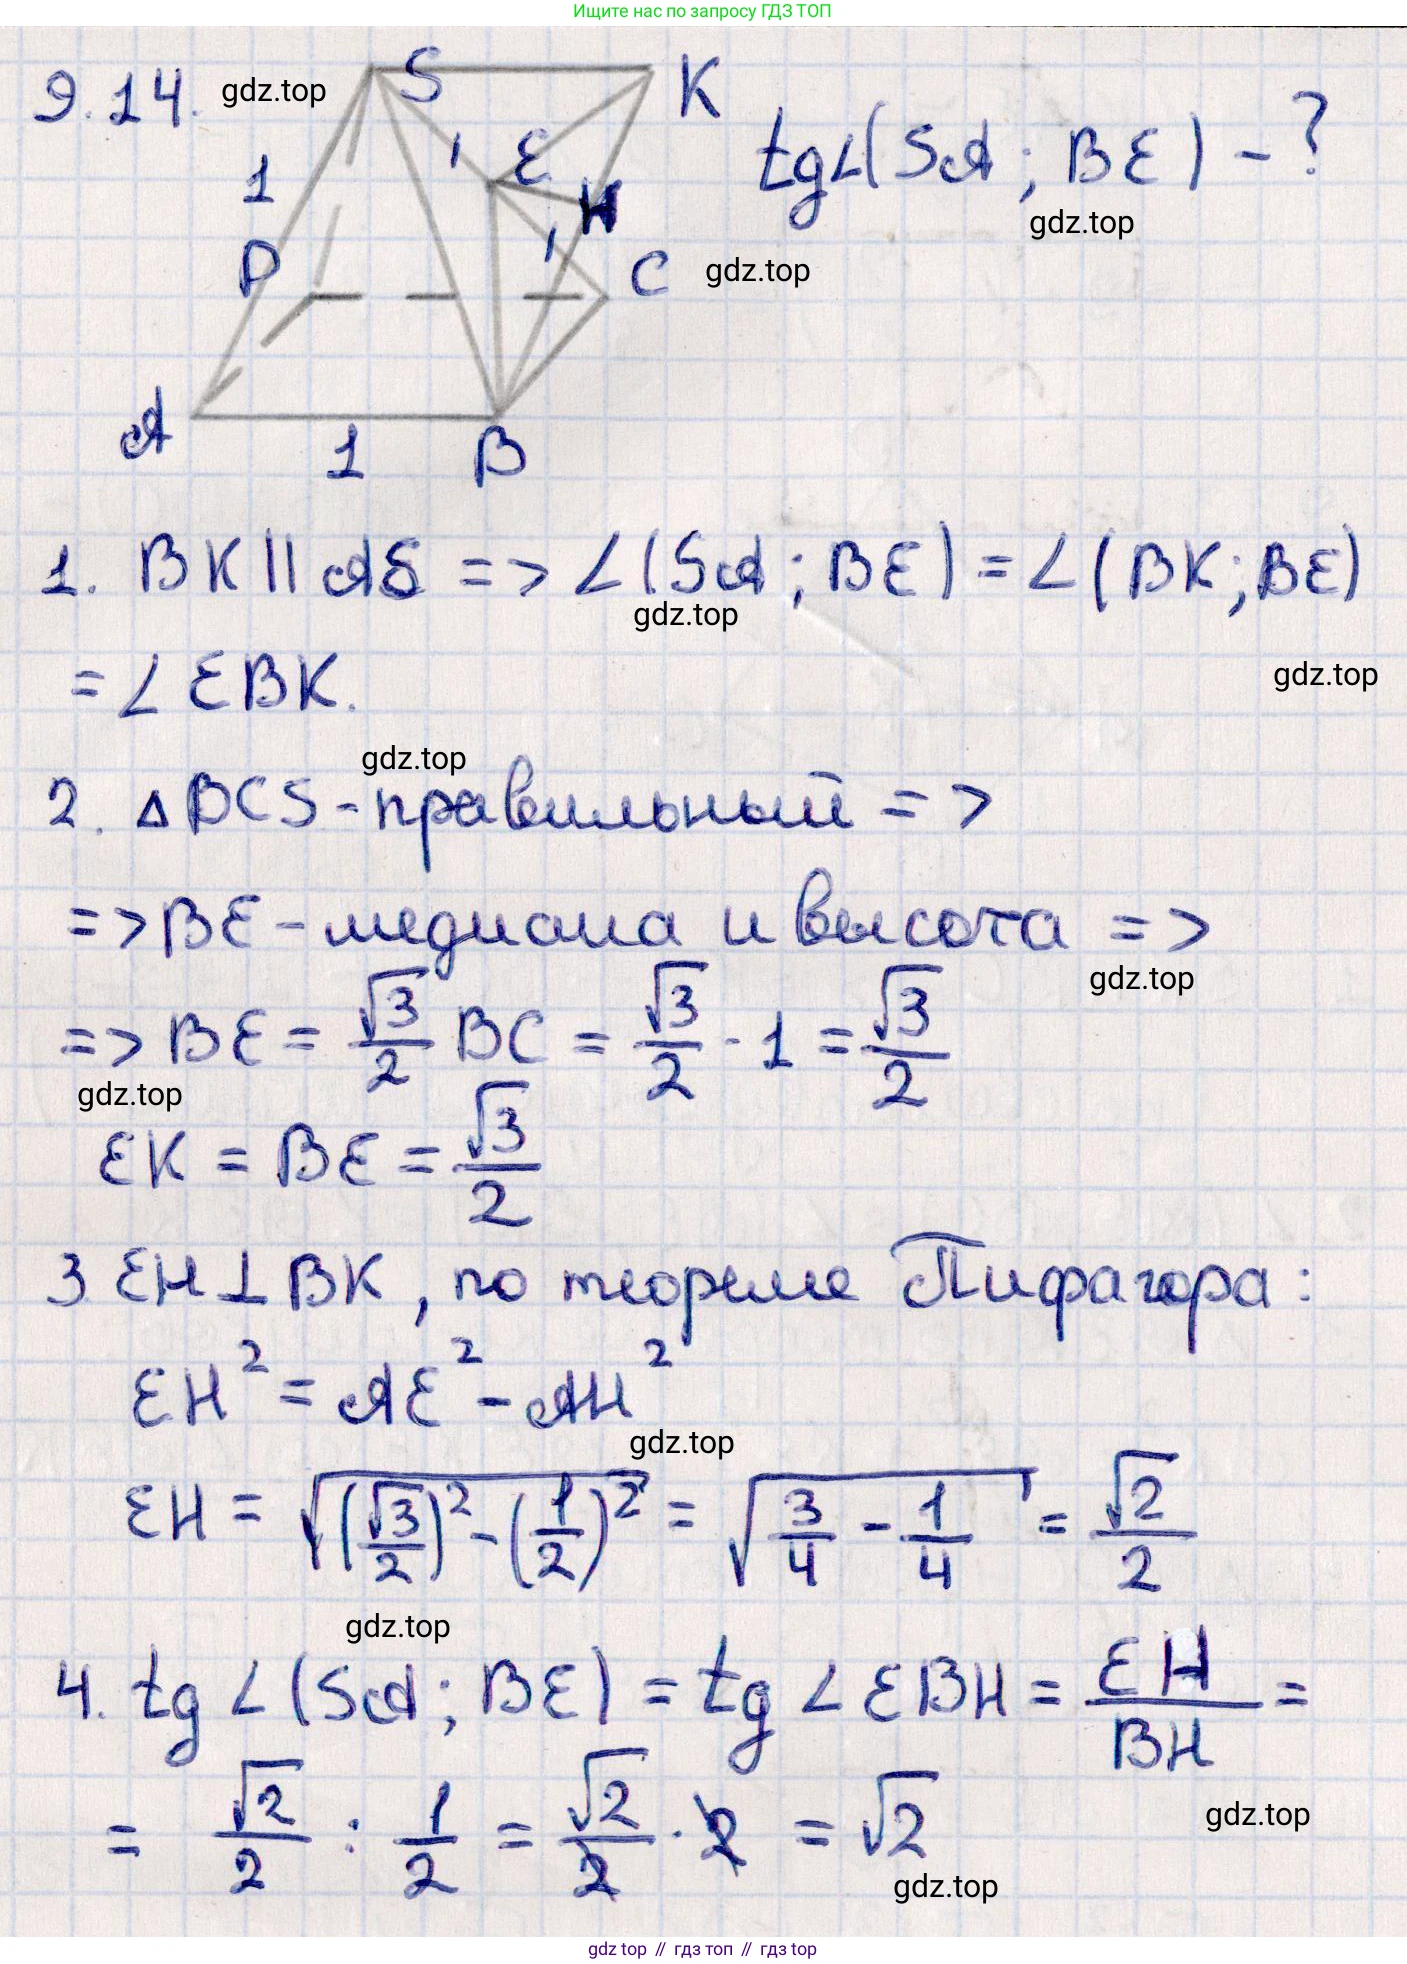 Ищите нас по запросу ГДЗ ТОП
9.14.
gdz.top
S
K
E
H
1
D
C
A
1
B
tg∠(SA; BE) - ?
gdz.top
gdz.top
1. BK || AS => ∠(SA; BE) = ∠(BK; BE)
gdz.top
= ∠EBK.
gdz.top
gdz.top
2. △BCS - правильный =>
=> BE - медиана и высота =>
gdz.top
=> BE = √3/2 BC = √3/2 · 1 = √3/2
gdz.top
EK = BE = √3/2
3 EH ⊥ BK, по теореме Пифагора:
EH² = AE² - AH²
gdz.top
EH = √((√3/2)² - (1/2)²) = √(3/4 - 1/4) = √2/2
gdz.top
4. tg ∠(SA; BE) = tg ∠EBH = EH/BH =
gdz.top
= √2/2 : 1/2 = √2/2 · 2 = √2
gdz.top
gdz top // гдз топ // гдз top